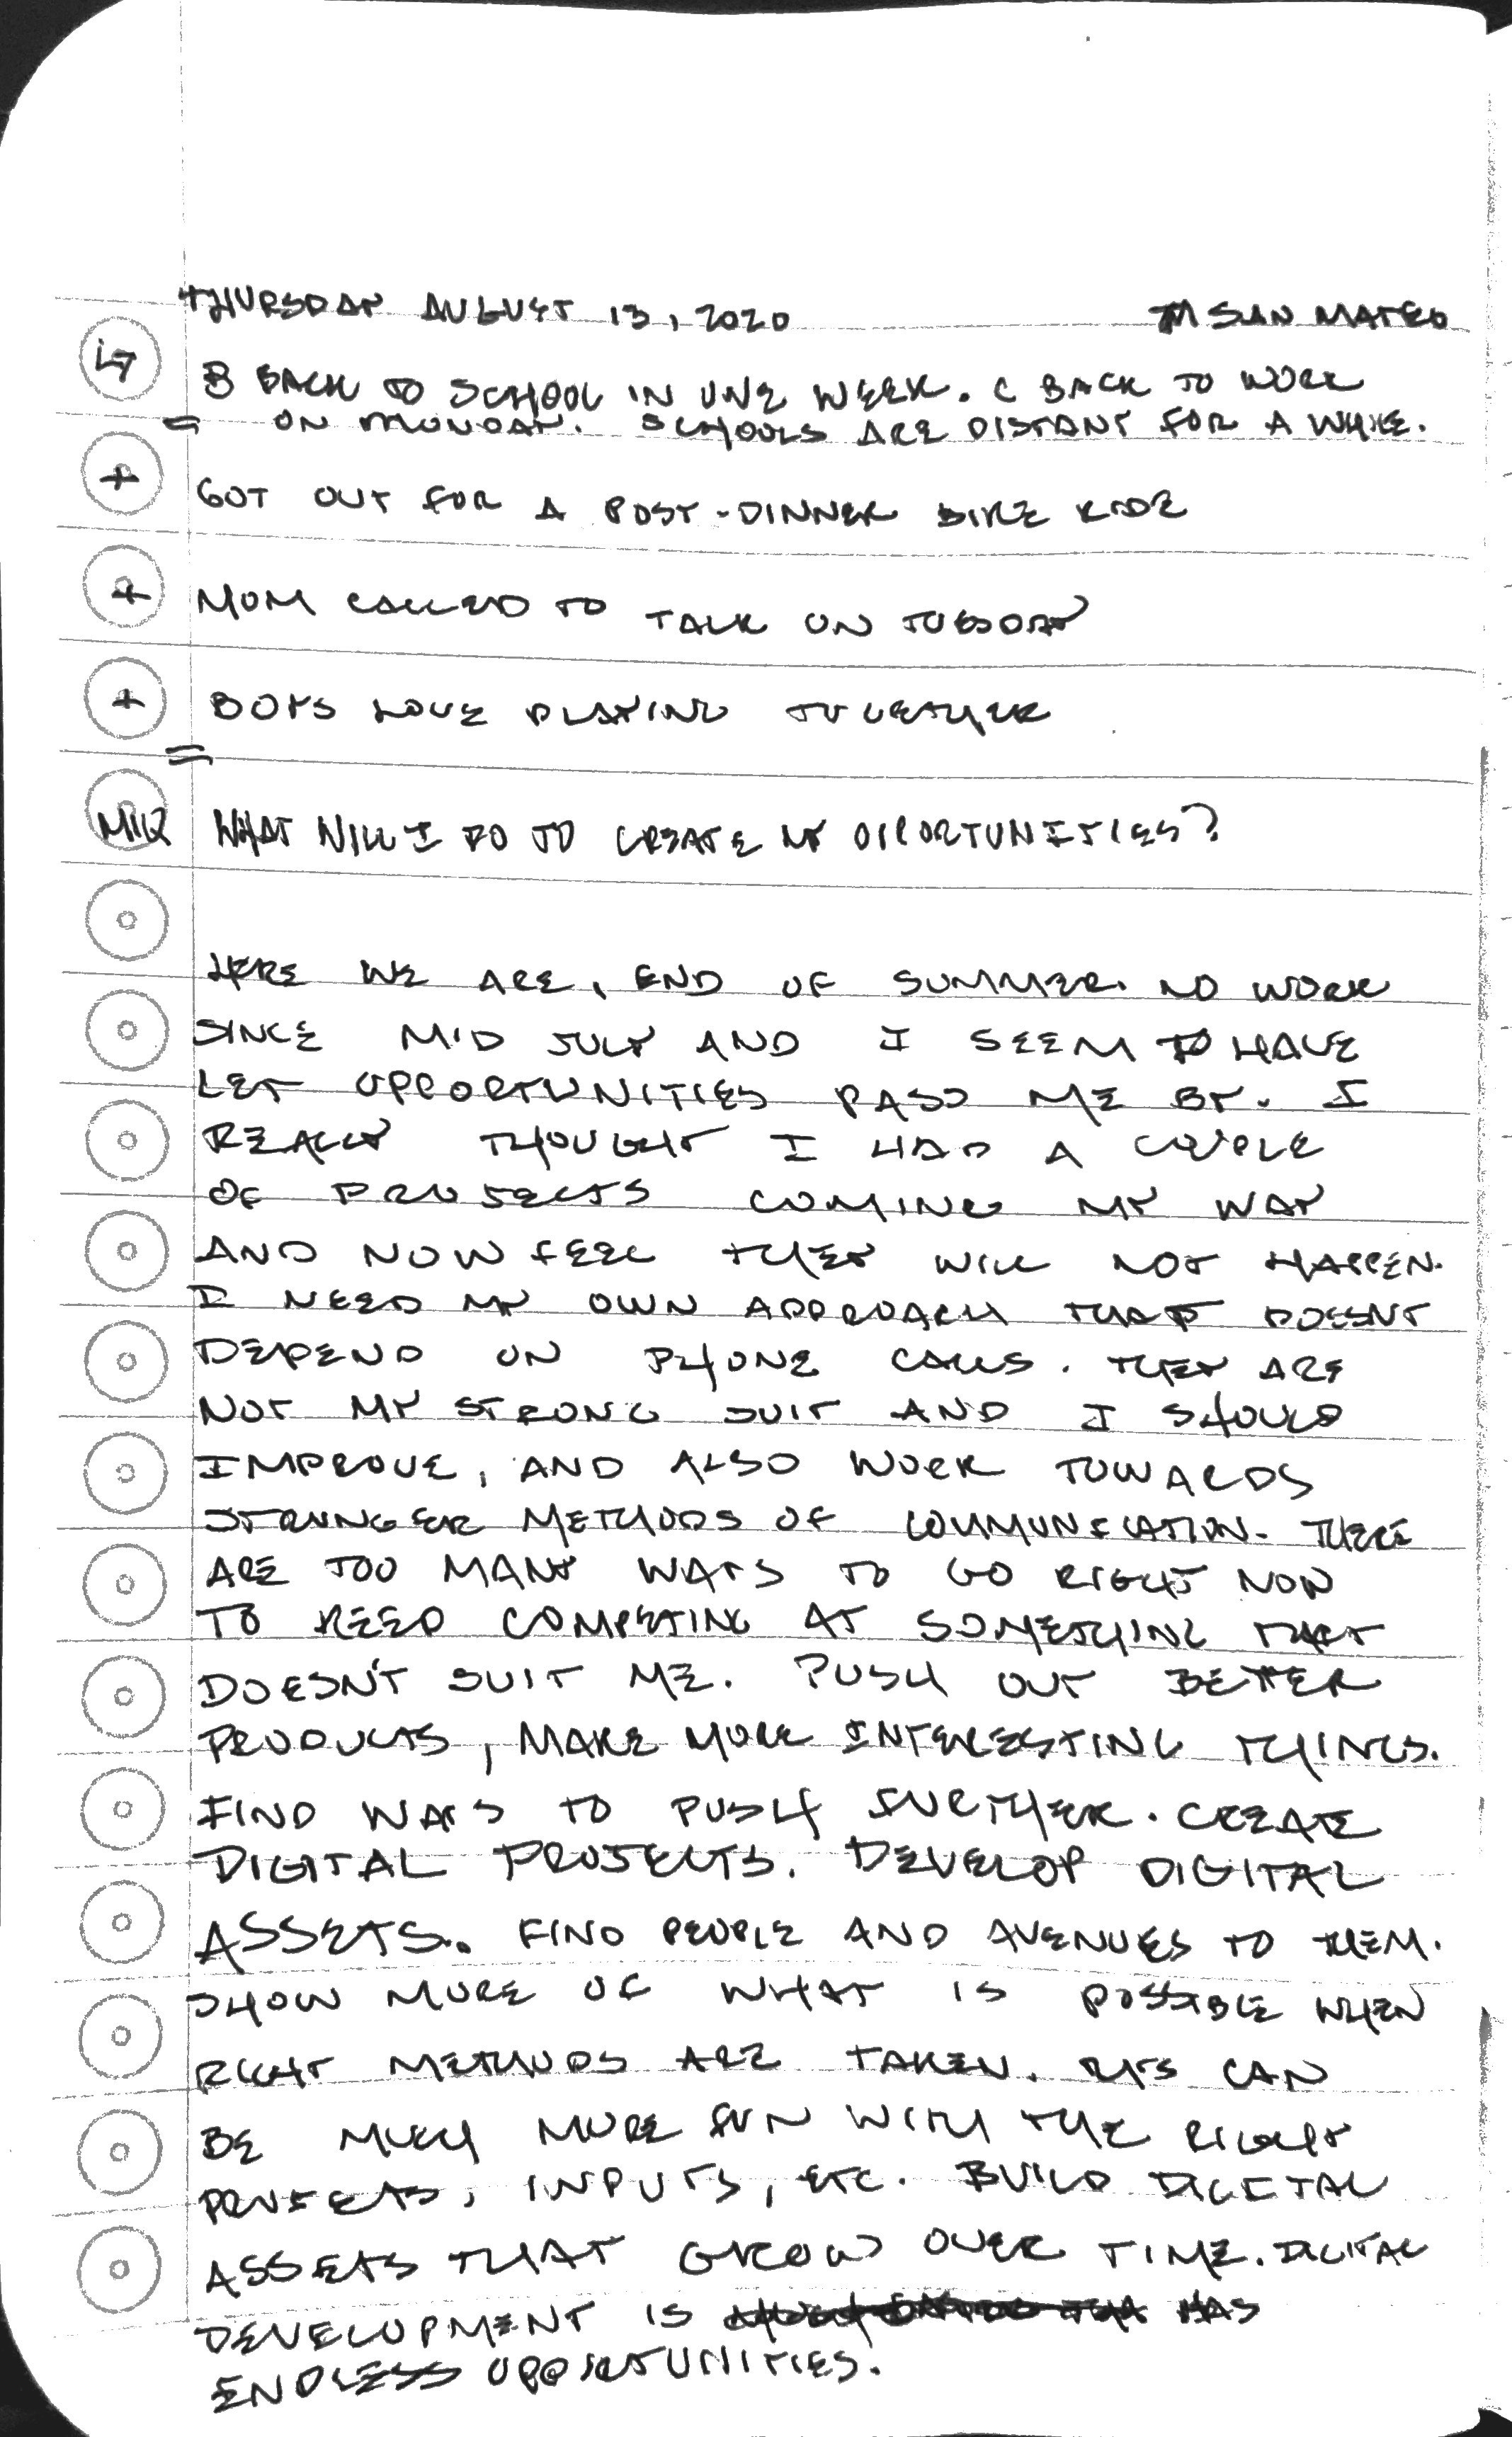 THURSDAY AUGUST 13, 2020 SAN MATEO
B BACK TO SCHOOL IN ONE WEEK. C BACK TO WORK
= ON MONDAY. SCHOOLS ARE DISTANT FOR A WHILE.
+ GOT OUT FOR A POST-DINNER BIKE RIDE
+ MOM CALLED TO TALK ON TUESDAY
+ BOYS LOVE PLAYING TOGETHER
=
MIQ WHAT WILL I DO TO CREATE MY OPPORTUNITIES?
HERE WE ARE, END OF SUMMER. NO WORK
SINCE MID JULY AND I SEEM TO HAVE
LET OPPORTUNITIES PASS ME BY. I
REALLY THOUGHT I HAD A COUPLE
OF PROJECTS COMING MY WAY
AND NOW FEEL THEY WILL NOT HAPPEN.
I NEED MY OWN APPROACH THAT DOESNT
DEPEND ON PHONE CALLS. THEY ARE
NOT MY STRONG SUIT AND I SHOULD
IMPROVE, AND ALSO WORK TOWARDS
STRONGER METHODS OF COMMUNICATION. THERE
ARE TOO MANY WAYS TO GO RIGHT NOW
TO KEEP COMPETING AT SOMETHING THAT
DOESN'T SUIT ME. PUSH OUT BETTER
PRODUCTS, MAKE MORE INTERESTING THINGS.
FIND WAYS TO PUSH FURTHER. CREATE
DIGITAL PROJECTS. DEVELOP DIGITAL
ASSETS. FIND PEOPLE AND AVENUES TO THEM.
SHOW MORE OF WHAT IS POSSIBLE WHEN
RIGHT METHODS ARE TAKEN. CAN
BE MUCH MORE FUN WITH THE RIGHT
PROJECTS, INPUTS, ETC. BUILD DIGITAL
ASSETS THAT GROW OVER TIME. DIGITAL
DEVELOPMENT IS HAS
ENDLESS OPPORTUNITIES.